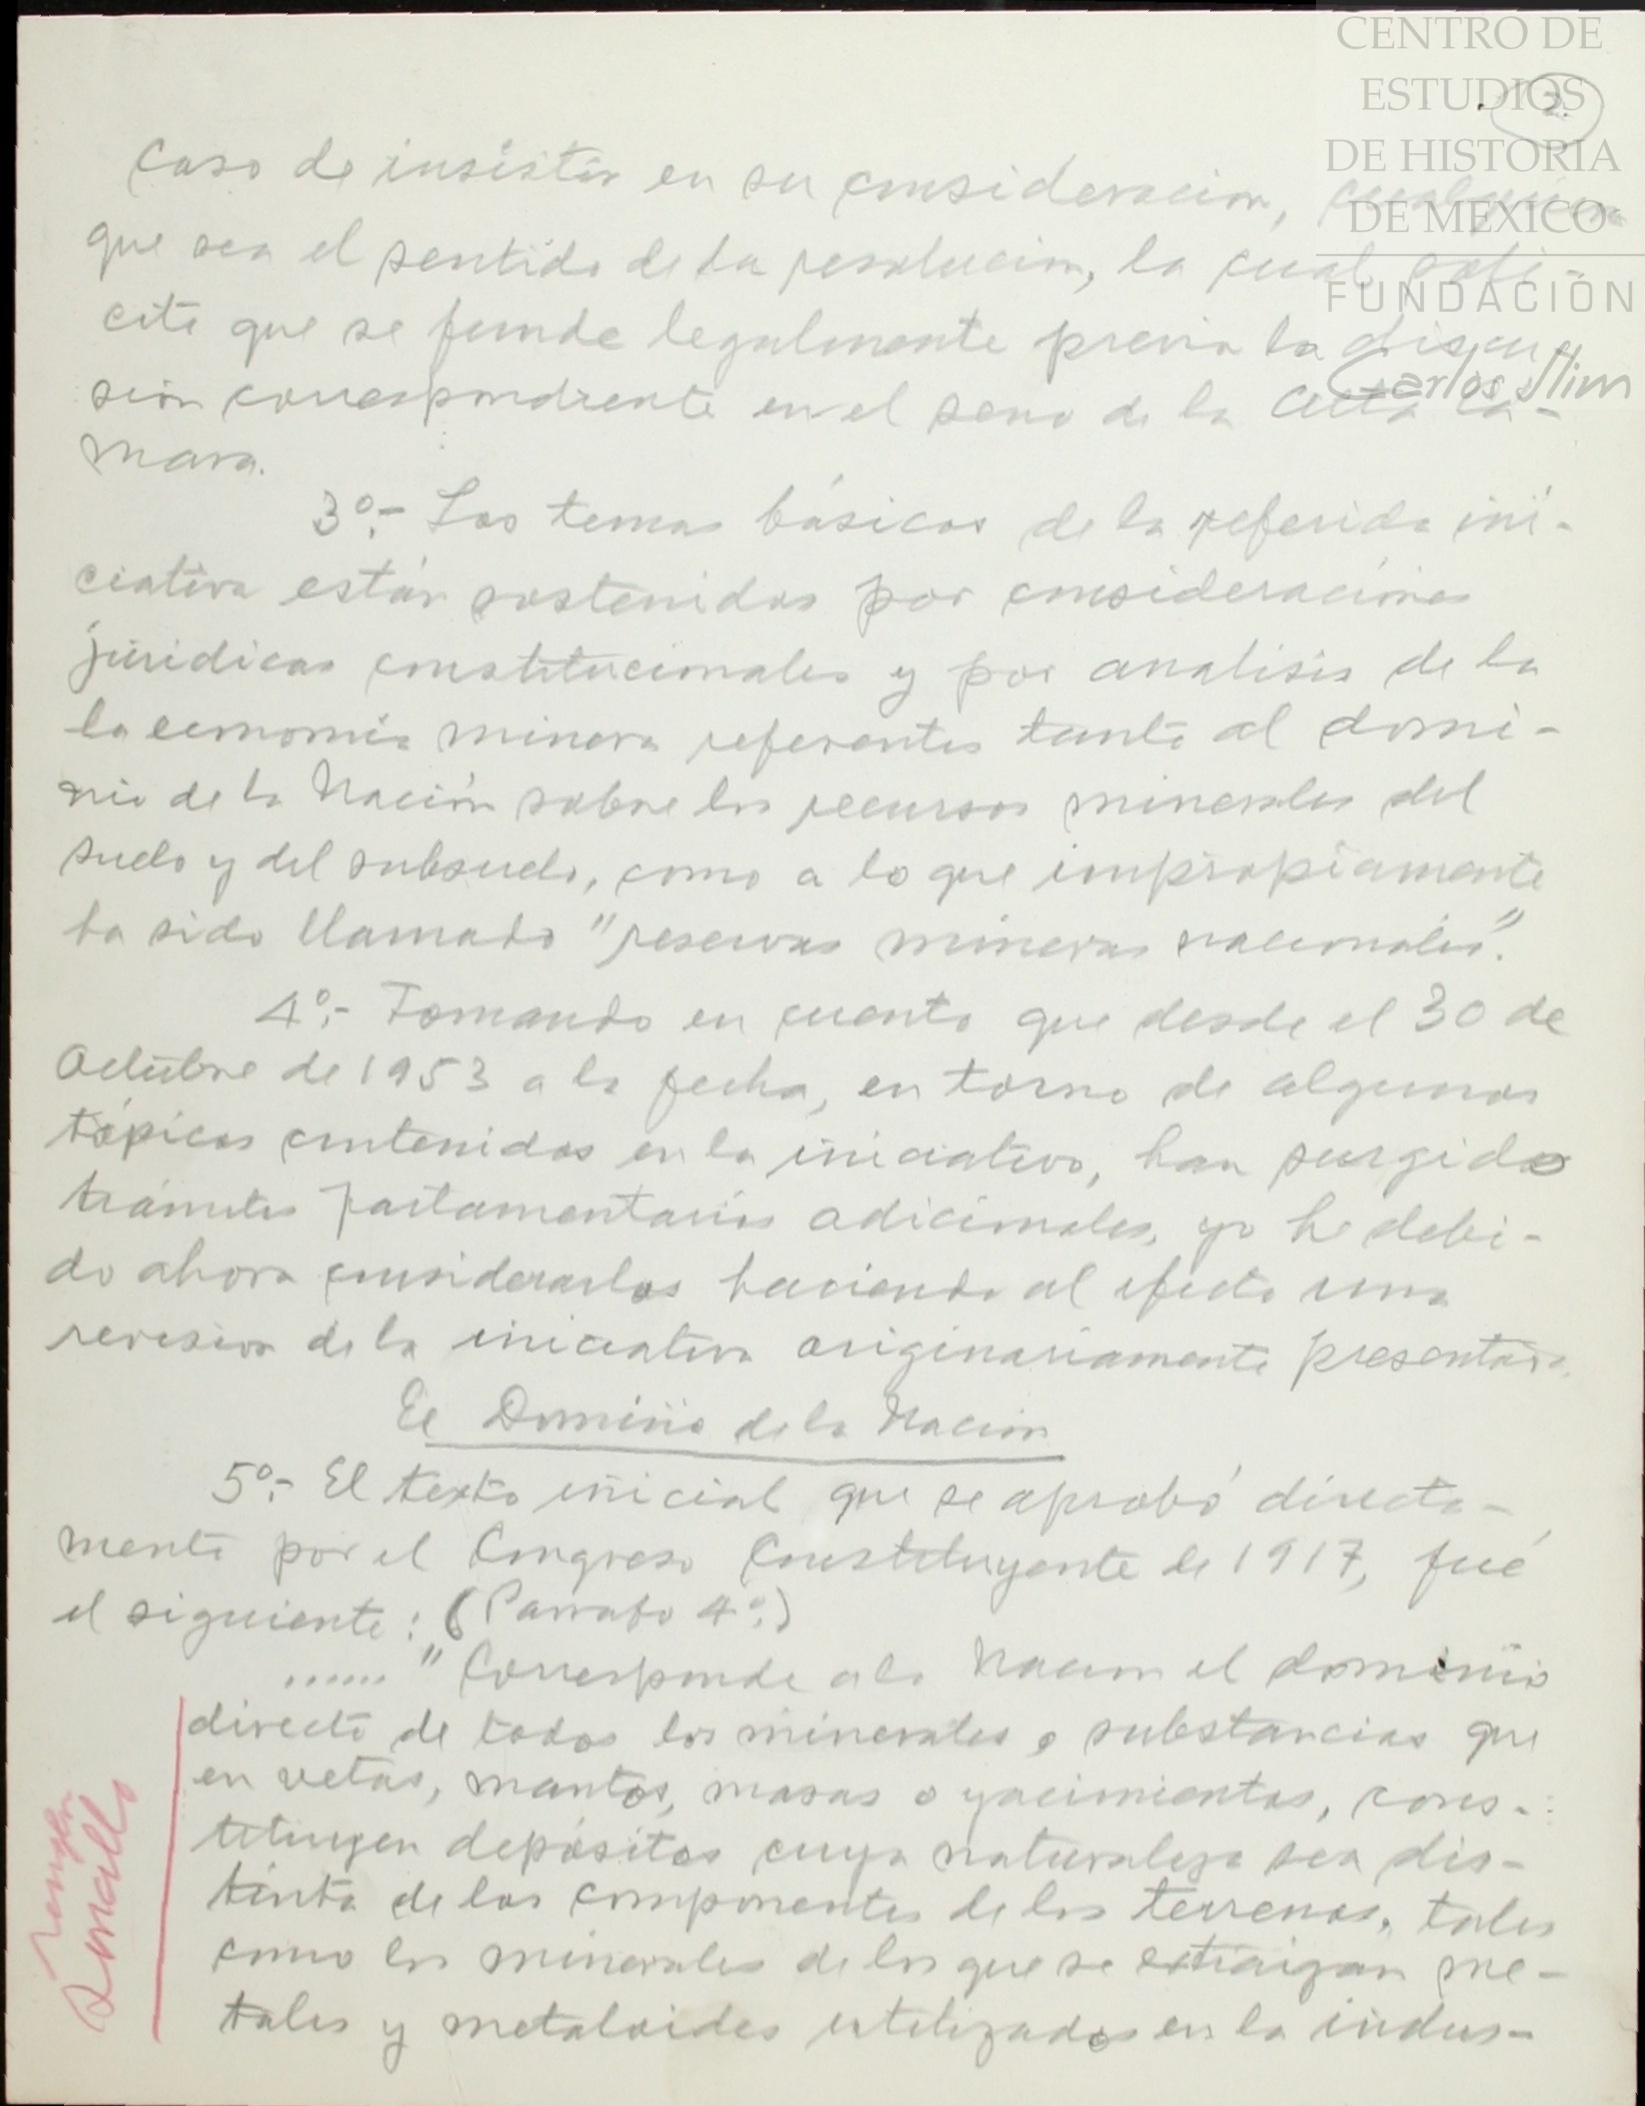 CENTRO DE
ESTUDIOS
DE HISTORIA
DE MEXICO
FUNDACIÓN
Carlos Slim
2.
Caso de insistir en su consideracion, cualquiera
que sea el sentido de la resolucion, la cual soli-
cité que se funde legalmente previa la discu-
sión correspondiente en el seno de la Alta Cá-
mara.
3º.- Los temas básicos de la referida ini-
ciativa están sostenidos por consideraciones
júridicas constitucionales y por analisis de la
la economía minera referentes tanto al domi-
nio de la Nación sobre los recursos minerales del
suelo y del subsuelo, como a lo que impropiamente
ha sido llamado "reservas mineras nacionales".
4º.- Tomando en cuenta que desde el 30 de
Octubre de 1953 a la fecha, en torno de algunos
tópicos contenidos en la iniciativa, han surgido
trámites parlamentarios adicionales, yo he debi-
do ahora considerarlos haciendo al efecto una
revisión de la iniciativa originariamente presentada.
El Dominio de la Nacion
5º.- El texto inicial que se aprobó directa-
mente por el Congreso Constituyente de 1917, fué
el siguiente: (Parrafo 4º.)
...... "Corresponde a la Nacion el dominio
directo de todos los minerales o substancias que
en vetas, mantos, masas o yacimientos, cons-
tituyen depósitos cuya naturaleza sea dis-
tinta de los componentes de los terrenos, tales
como los minerales de los que se extraigan me-
tales y metaloides utilizados en la indus-
renglon
Sencillo